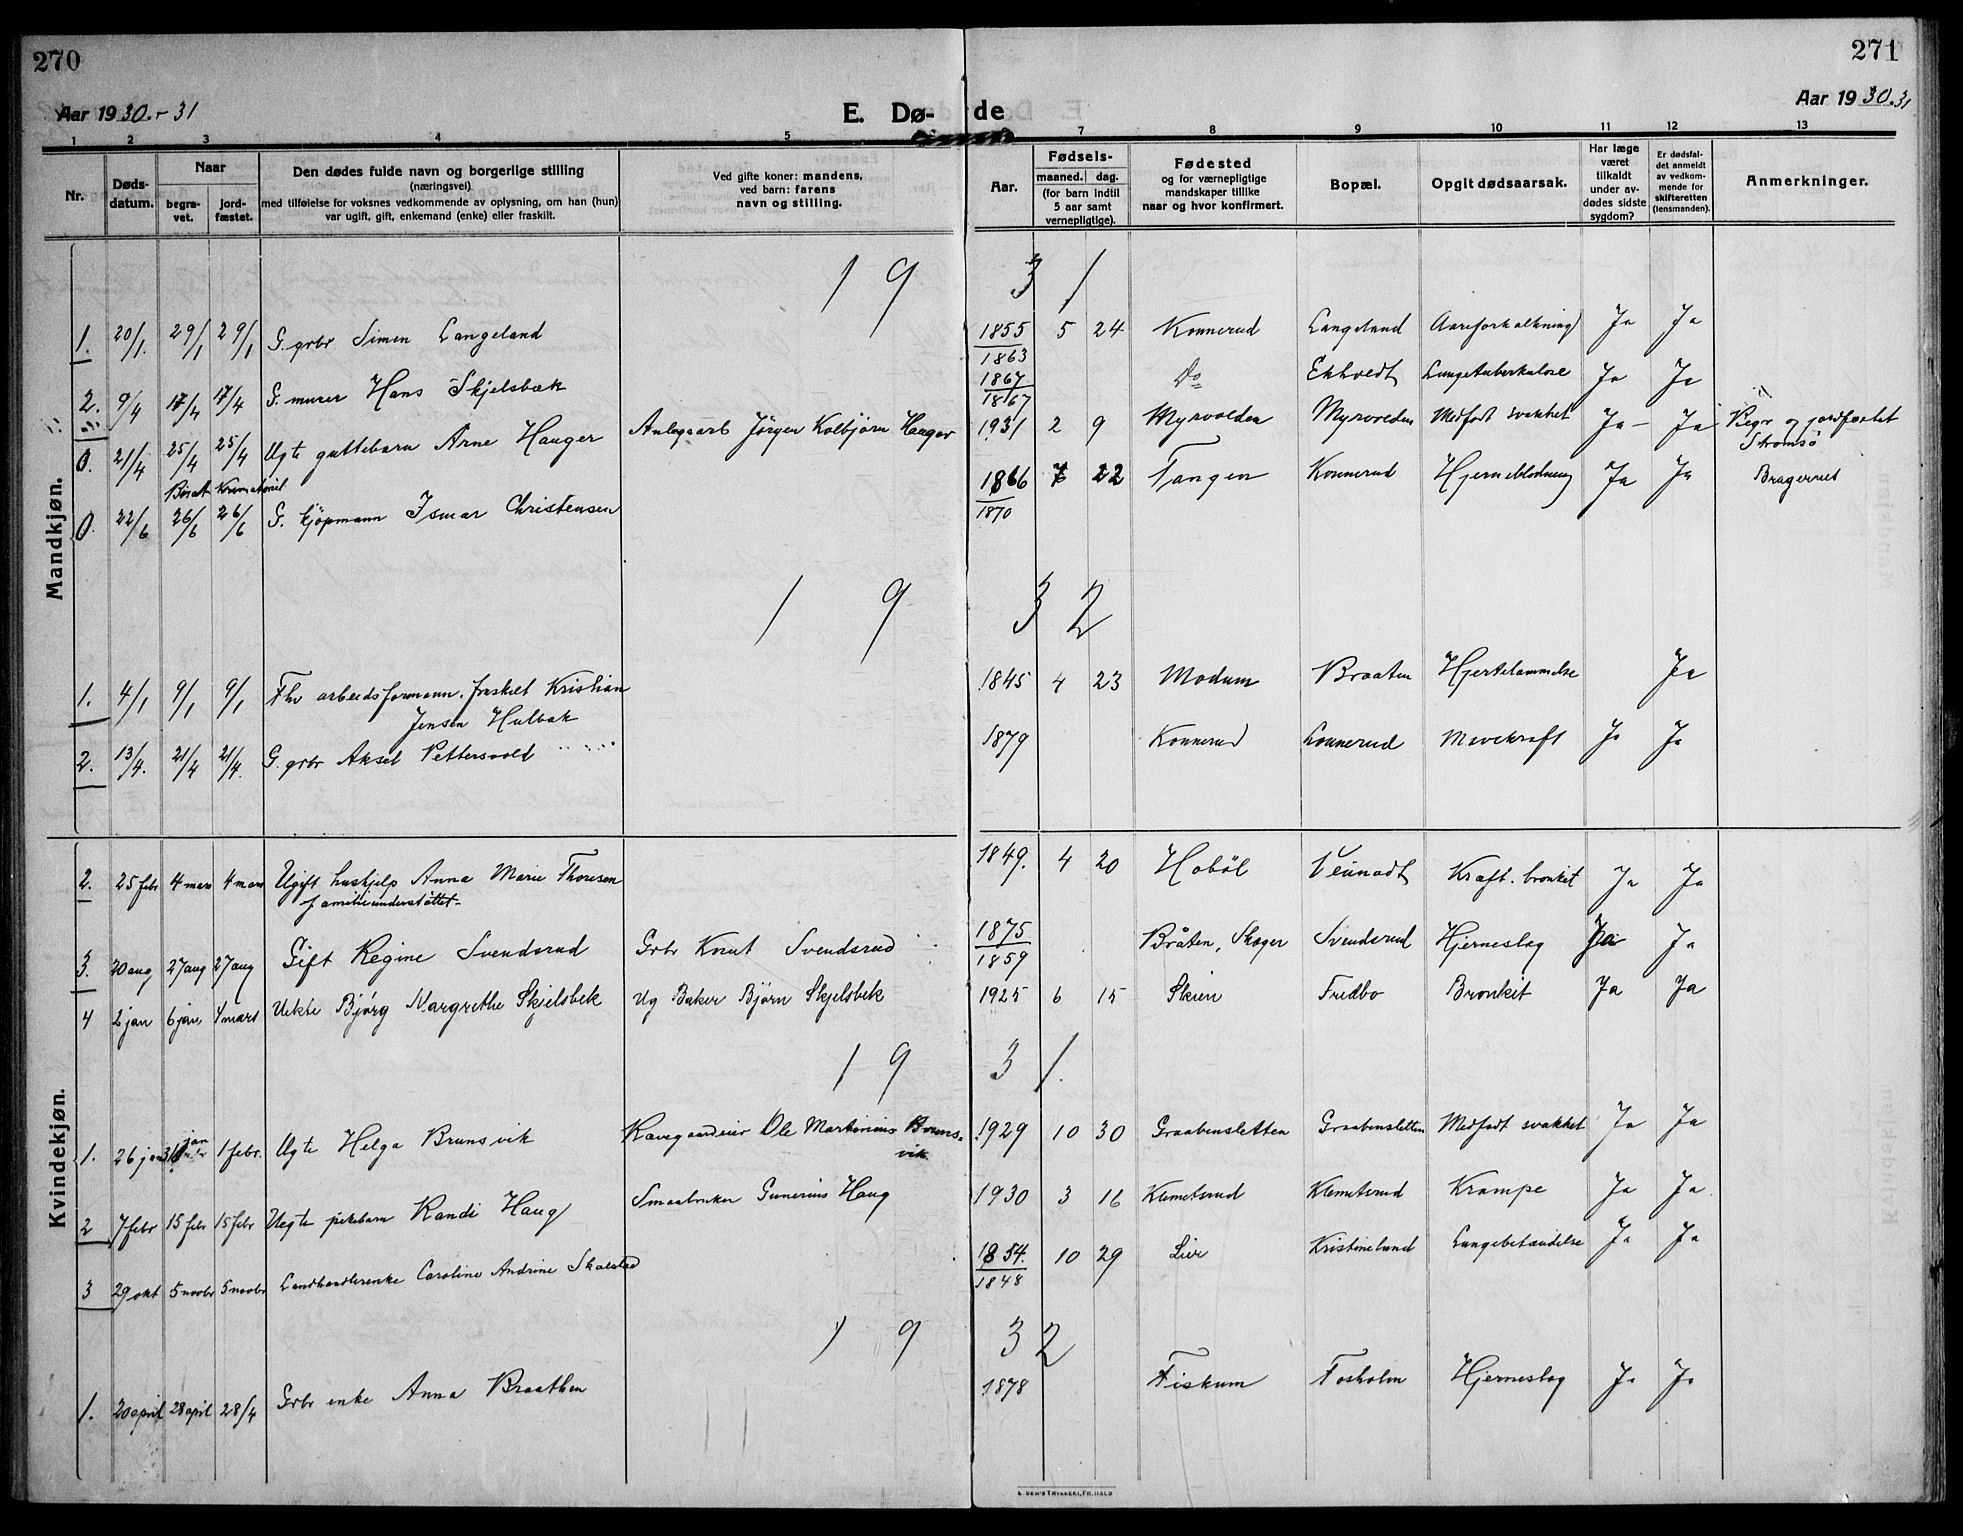 270
271
Aar 1930.-31
E. Dø-de
Aar 1930.31
1 2 3 4 5 7 8 9 10 11 12 13
Nr.
Døds-datum.
Naar
begra-vet.
jord-fæstet.
Den dødes fulde navn og borgerlige stilling
(næringsvei)
med tilføielse for voksnes vedkommende av oplysning, om han (hun)
var ugift, gift, enkemand (enke) eller fraskilt.
Ved gifte koner: mandens,
ved barn: farens
navn og stilling.
Aar.
Fødsels-
maaned. dag.
(for barn indtil
5 aar samt
vernepligtige).
Fødested
og for værnepligtige
mandskaper tillike
naar og hvor konfirmert.
Bopæl.
Opgit dødsaarsak.
Har læge
været
tilkaldt
under av-
dødes sidste
sygdom?
Er dødsfal-
det anmeldt
av vedkom-
mende for
skifteretten
(lensmanden).
Anmerkninger.
Mandkjøn.
1 9 3 1
1. 20/1. 29/1 29/1 G. grbr Simen Langeland 1855 5 24 Konnerud Langeland Aareforkalkning Ja Ja
1863
2. 9/4 17/4 17/4 G. murer Hans Skjelsbæk 1867 Do Ekholdt Lungetuberkulose Ja Ja
1867
0. 21/4 25/4 25/4 Ugte guttebarn Arne Hauger Anlegsarb Jørgen Kolbjørn Hauger 1931 2 9 Myrvolden Myrvolden Medfødt svakhet Ja - Ja Begr og jordfæstet
Strømsø
Bisat Krematoriet
0. 22/6 26/6 26/6 G. kjøpmann Ismar Christensen 1866 7 22 Tangen Konnerud Hjerneblødning Ja Ja Bragernes
1870
1 9 3 2
1. 4/1 9/1 9/1 Fhv arbeidsformann, fraskilt Kristian 1845 4 23 Modum Braaten Hjertelammelse Ja
Jensen Hulbak
2. 13/4. 21/4 21/4. G. grbr Aksel Pettersvold 1879 Konnerud Konnerud Mavekraft Ja Ja
Kvindekjøn.
2. 25 febr 4 mars 4 mars Ugift hushjelp Anna Marie Thoresen 1849. 4 20 Hobøl Kraft. bronkit Ja Ja
familieunderstøttet-
3. 20 aug 27 aug 27 aug Gift Regine Svendsrud Grbr Knut Svendsrud 1875 Bråten, Skoger Svendsrud Hjerneslag Ja Ja
1859
4 2 jan 6 jan 4 mars Uekte Bjørg Margrethe Skjelsbek Ug Baker Bjørn Skjelsbek 1925 6 15 Skien Fredbo Bronkit Ja Ja
1 9 3 1.
1. 26 jan 31 jan 1 febr. Ugte Helga Brunsvik Ole Martinius Bruns- 1929 10 30 Graabensletten Graabensletten Medfødt svakhet Ja Ja
vik.
2 7 febr 15 febr 15 febr Uegte pikebarn Randi Haug Smaabruker Gunerius Haug 1930 3 16 Klemetsrud Klemetsrud Krampe Ja Ja
3 29 okt 5 novbr 5 novbr Landhandlerenke Caroline Andrine Skalstad 1854. 10 29 Lier Kristinelund Lungebetændelse Ja Ja
1848
1 9 3 2
1. 20 april 28 april 28/4 Grbr enke Anna Braathen 1878 Fiskum Fosholm Hjerneslag Ja Ja